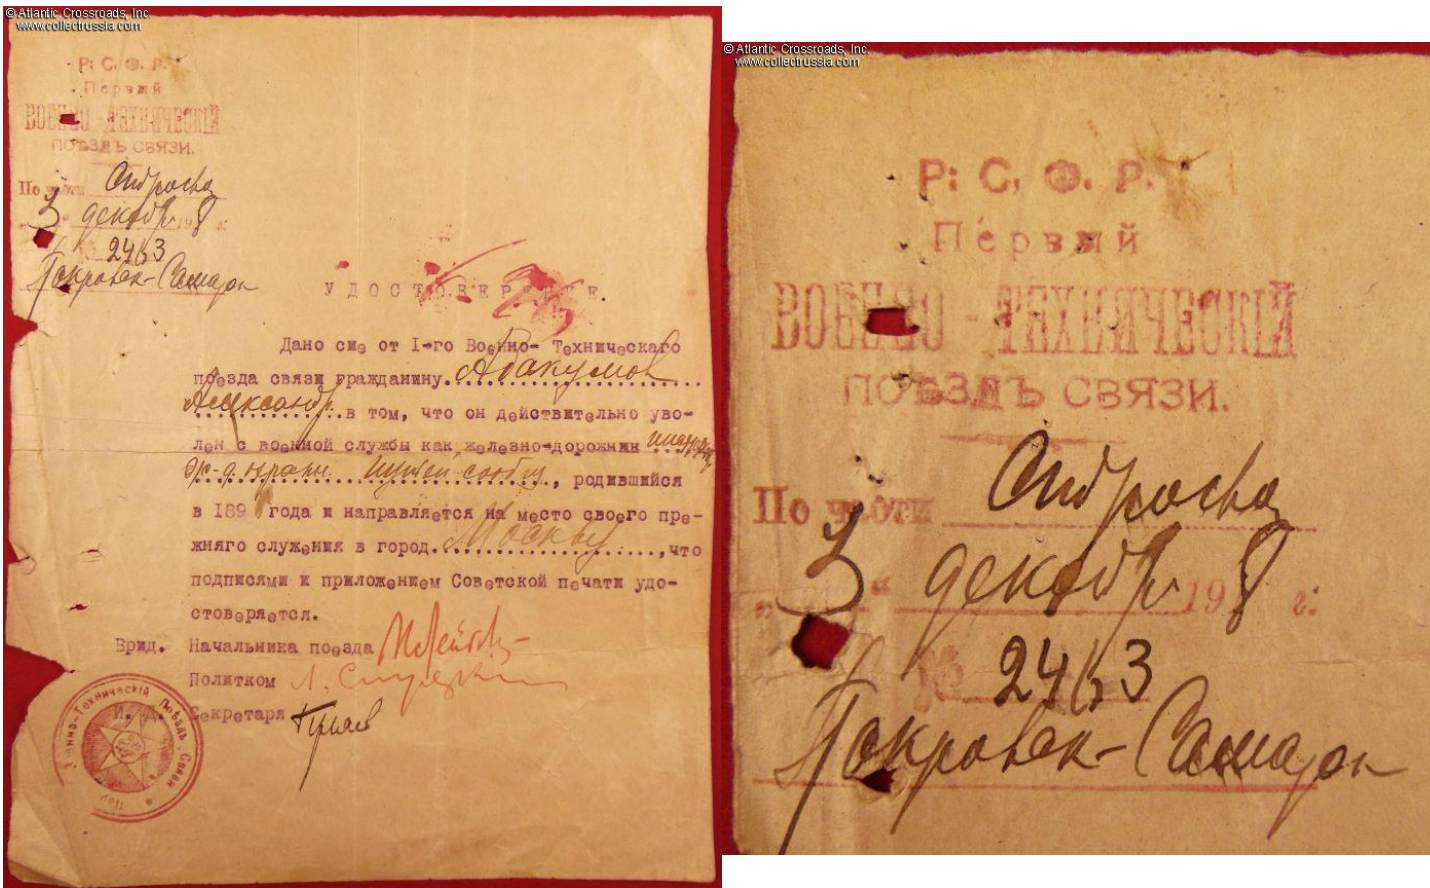 © Atlantic Crossroads, Inc.
www.collectrussia.com
Р. С. Ф. Р.
Первый
ВОЕННО - ТЕХНИЧЕСКІЙ
ПОѢЗДЪ СВЯЗИ.
По части
3 декабр. 1918 г.
№ 2463
Покровск-Самара
УДОСТОВЕРЕНИЕ.
Дано сие от I-го Военно- Техническаго
поезда связи гражданину Абакумов
Александр в том, что он действительно уво-
лен с военной службы как железно-дорожник
ж-д. путей сообщ., родившийся
в 189 года и направляется на место своего пре-
жняго служения в город. Москву, что
подписями и приложением Советской печати удо-
стоверяется.
Врид. Начальника поезда
Политком
И. Д. Секретаря
Военно-Техническій Поѣздъ Связи
© Atlantic Crossroads, Inc.
www.collectrussia.com
Р. С. Ф. Р.
Первый
ВОЕННО - ТЕХНИЧЕСКІЙ
ПОѢЗДЪ СВЯЗИ.
По части
„3“ декабр. 1918 г.
№ 2463
Покровск-Самара